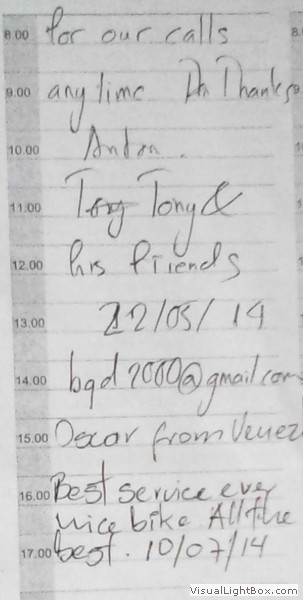 8.00 for our calls 8.
9.00 any time Thanks
10.00 Anton.
11.00 Tony &
12.00 his friends
13.00 22/05/14
14.00 bgd2000@gmail.com
15.00 Oscar from Venez
16.00 Best service ever
nice bike All the
17.00 best. 10/07/14
VisualLightBox.com